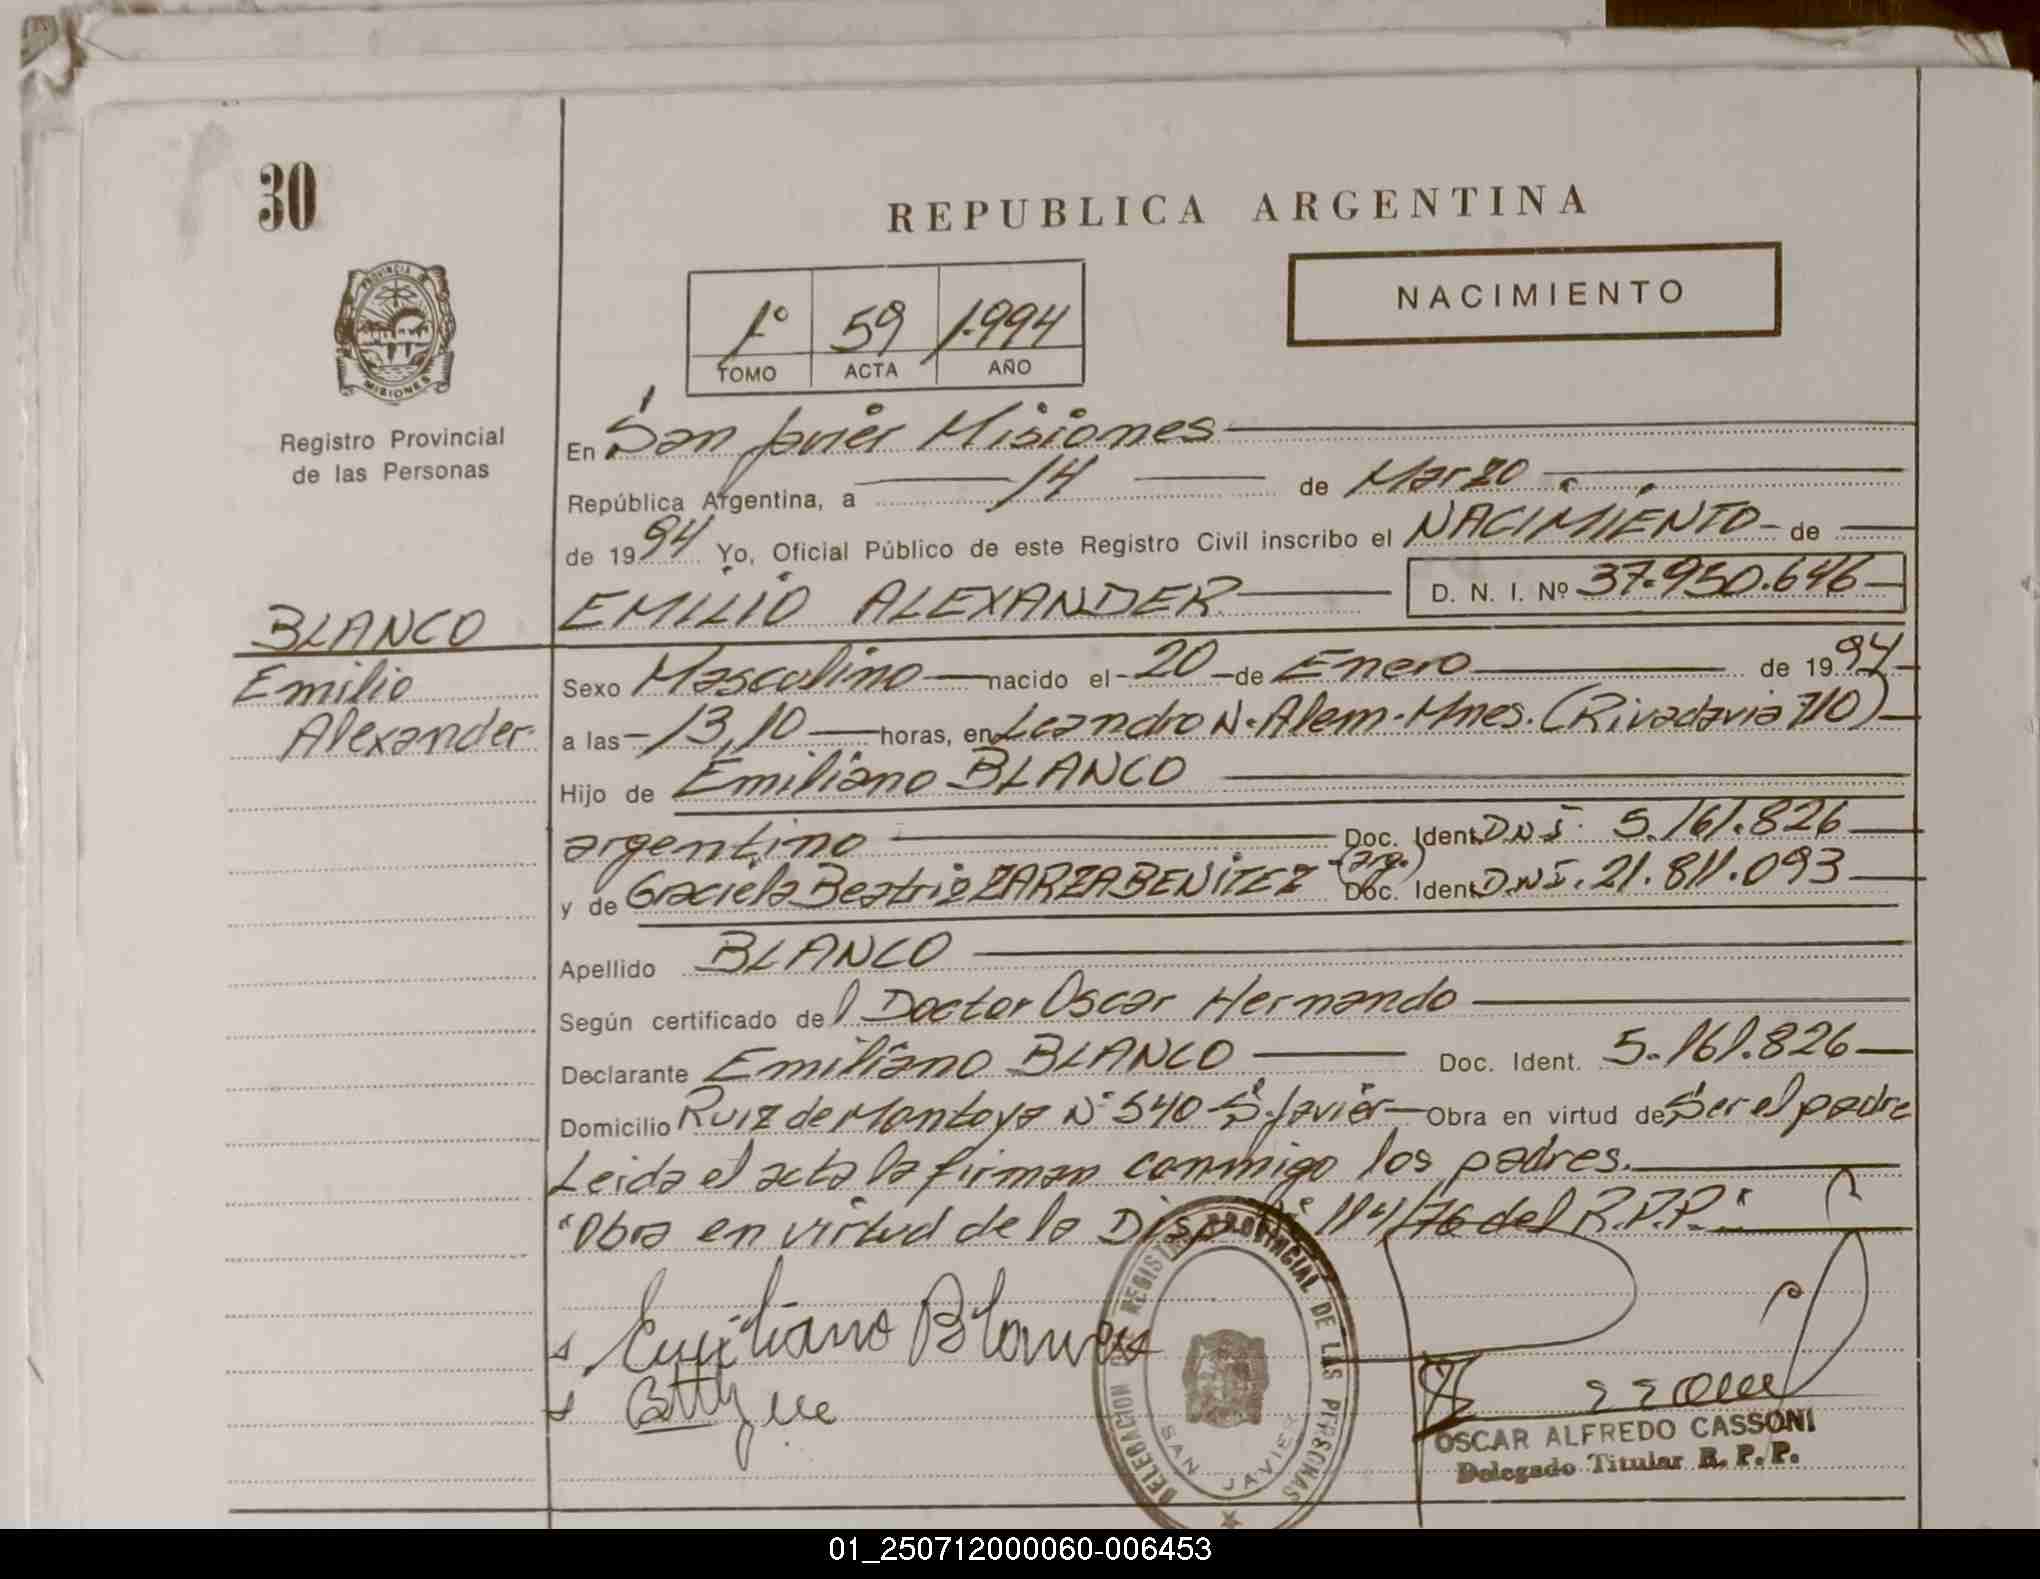 30
REPUBLICA ARGENTINA
NACIMIENTO
1º 59 1.994
TOMO ACTA AÑO
PROVINCIA DE MISIONES
Registro Provincial
de las Personas
En San Javier Misiones
República Argentina, a 14 de Marzo
de 1994 Yo, Oficial Público de este Registro Civil inscribo el NACIMIENTO de
BLANCO EMILIO ALEXANDER D. N. I. Nº 37.950.646
Emilio
Alexander
Sexo Masculino nacido el 20 de Enero de 1994
a las 13,10 horas, en Leandro N. Alem. Mnes. (Rivadavia 710)
Hijo de Emiliano BLANCO
argentino Doc. Ident. D.N.I. 5.161.826
y de Graciela Beatriz ZARZA BENITEZ (arg.) Doc. Ident. D.N.I. 21.811.093
Apellido BLANCO
Según certificado del Doctor Oscar Hernando
Declarante Emiliano BLANCO Doc. Ident. 5.161.826
Domicilio Ruiz de Montoya Nº 540 S. Javier Obra en virtud de Ser el padre
Leida el acta la firman conmigo los padres.
"Obra en virtud de la Disp. Nº 114/76 del R.P.P."
Emiliano Blanco
DELEGACION DE REGISTRO PROVINCIAL DE LAS PERSONAS
SAN JAVIER
OSCAR ALFREDO CASSONI
Delegado Titular R. P. P.
01_250712000060-006453